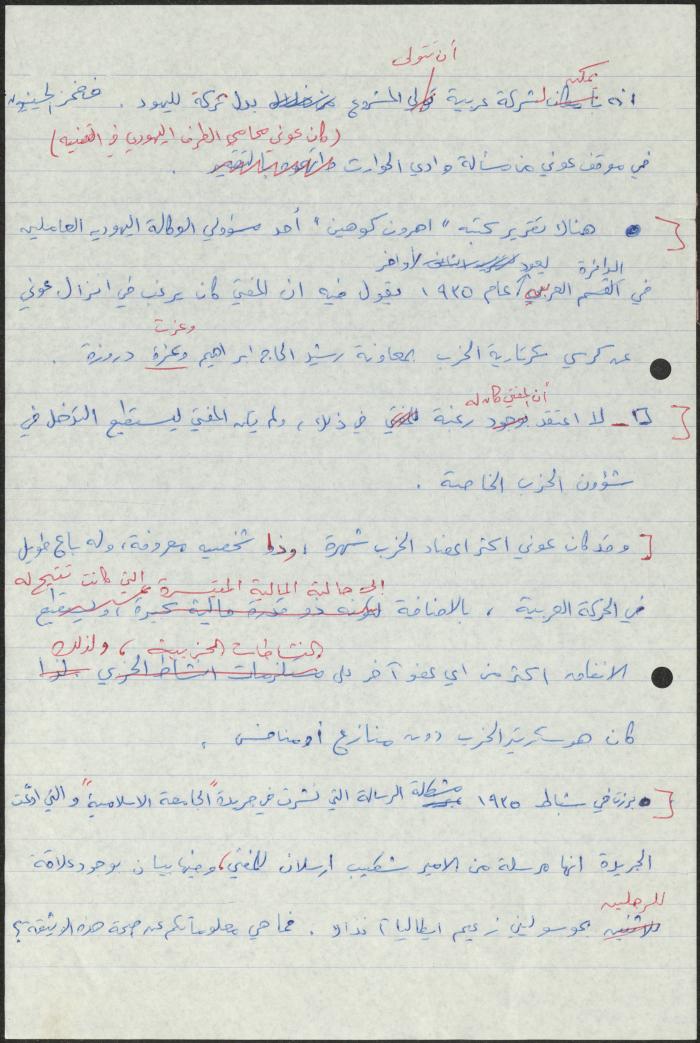 أن تتولى
يمكن
انه لشركة عربية المشروع بدل شركة لليهود .
(كان عوني محامي الطرف اليهودي في القضية)
في موقف عوني من مسألة وادي الحوارث
هنالك تقرير كتبه "اهرون كوهين" أحد مسؤولي الوكالة اليهودية العاملين
الدائرة يعود أواخر
في القسم العربي / عام ١٩٣٥ يقول فيه ان المفتي كان يرغب في انزال عوني
وعزت
عن كرسي سكرتارية الحزب بمعاونة رشيد الحاج ابراهيم وعزة دروزة .
أن المفتي كان له
لا اعتقد وجود رغبة للمفتي في ذلك ، ولم يكن المفتي ليستطيع التدخل في
شؤون الحزب الخاصة .
وقد كان عوني اكثر اعضاء الحزب شهرة ، وذا شخصية معروفة ، وله باع طويل
الى حالته المالية المتيسرة التي كانت تتيح له
في الحركة العربية ، بالاضافة لكونه ذو قدرة مالية كبيرة ، ويستطيع
النشاطات الحزبية ، ولذلك
الانفاق اكثر من اي عضو آخر على مستلزمات النشاط الحزبي لذا
كان هو سكرتير الحزب دون منازع أو منافس .
برزت في شباط ١٩٣٥ مشكلة الرسالة التي نشرت في جريدة "الجامعة الاسلامية" والتي ادّعت
الجريدة انها مرسلة من الامير شكيب ارسلان للمفتي ، وفيها بيان بوجود علاقة
للرجلين
للاثنين بموسوليني زعيم ايطاليا آنذاك . فما هي معلوماتكم عن صحة هذه الوثيقة ؟